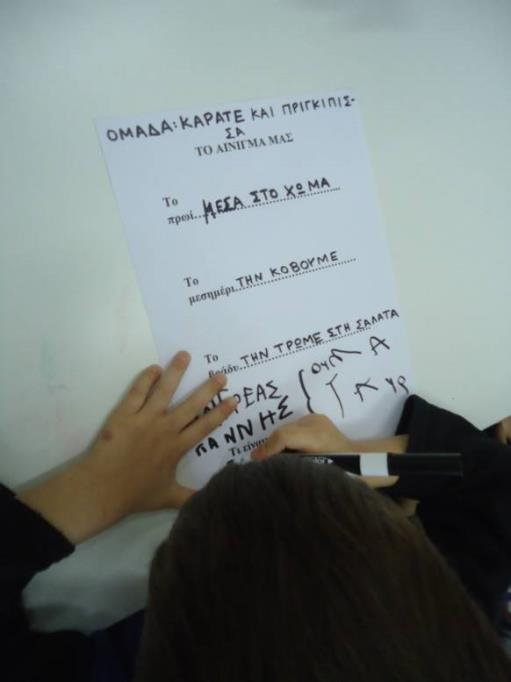 ΟΜΑΔΑ: ΚΑΡΑΤΕ ΚΑΙ ΠΡΙΓΚΙΠΙΣ-
ΣΑ
ΤΟ ΑΙΝΙΓΜΑ ΜΑΣ
Το
πρωί...ΜΕΣΑ ΣΤΟ ΧΩΜΑ
Το
μεσημέρι...ΤΗΝ ΚΟΒΟΥΜΕ
Το
βράδυ...ΤΗΝ ΤΡΩΜΕ ΣΤΗ ΣΑΛΑΤΑ
Τι είναι